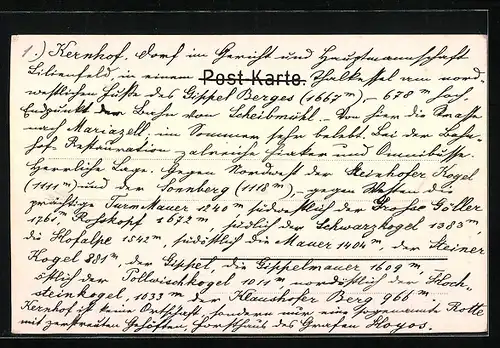 1.) Kernhof. Dorf im Gericht und Hauptmannschaft
Lilienfeld, in einem Thalkessel am nord-
Post-Karte.
westlichen Fuße des Gippel Berges (1667 m), 678 m hoch,
Endpunkt der Bahn von Scheibmühl. Von hier die Strasse
nach Mariazell, im Sommer sehr belebt. Bei der Bahn-
hof Restauration zalreiche Fiaker und Omnibusse.
Herrliche Lage. Gegen Nordwest der Steinhofer Kogel
(1111 m) und der Sonnberg (1118 m), gegen Westen die
prächtige Turm Mauer 1240 m, südwestlich der Grosse Göller
1761 m Rosskopf 1672 m, südlich der Schwarzkogel 1383 m,
die Hofalpe 1542 m, südöstlich die Mauer 1404 m, der Steiner
Kogel 891 m, der Gippel, die Gippelmauer 1609 m,
östlich der Pollwischkogel 1011 m nordöstlich der Hoch-
steinkogel, 1033 m der Klaushofer Berg 966 m.
Kernhof ist keine Ortschaft sondern nur eine sogenannte Rotte
mit zerstreuten Gehöften, Forsthaus des Grafen Hoyos.